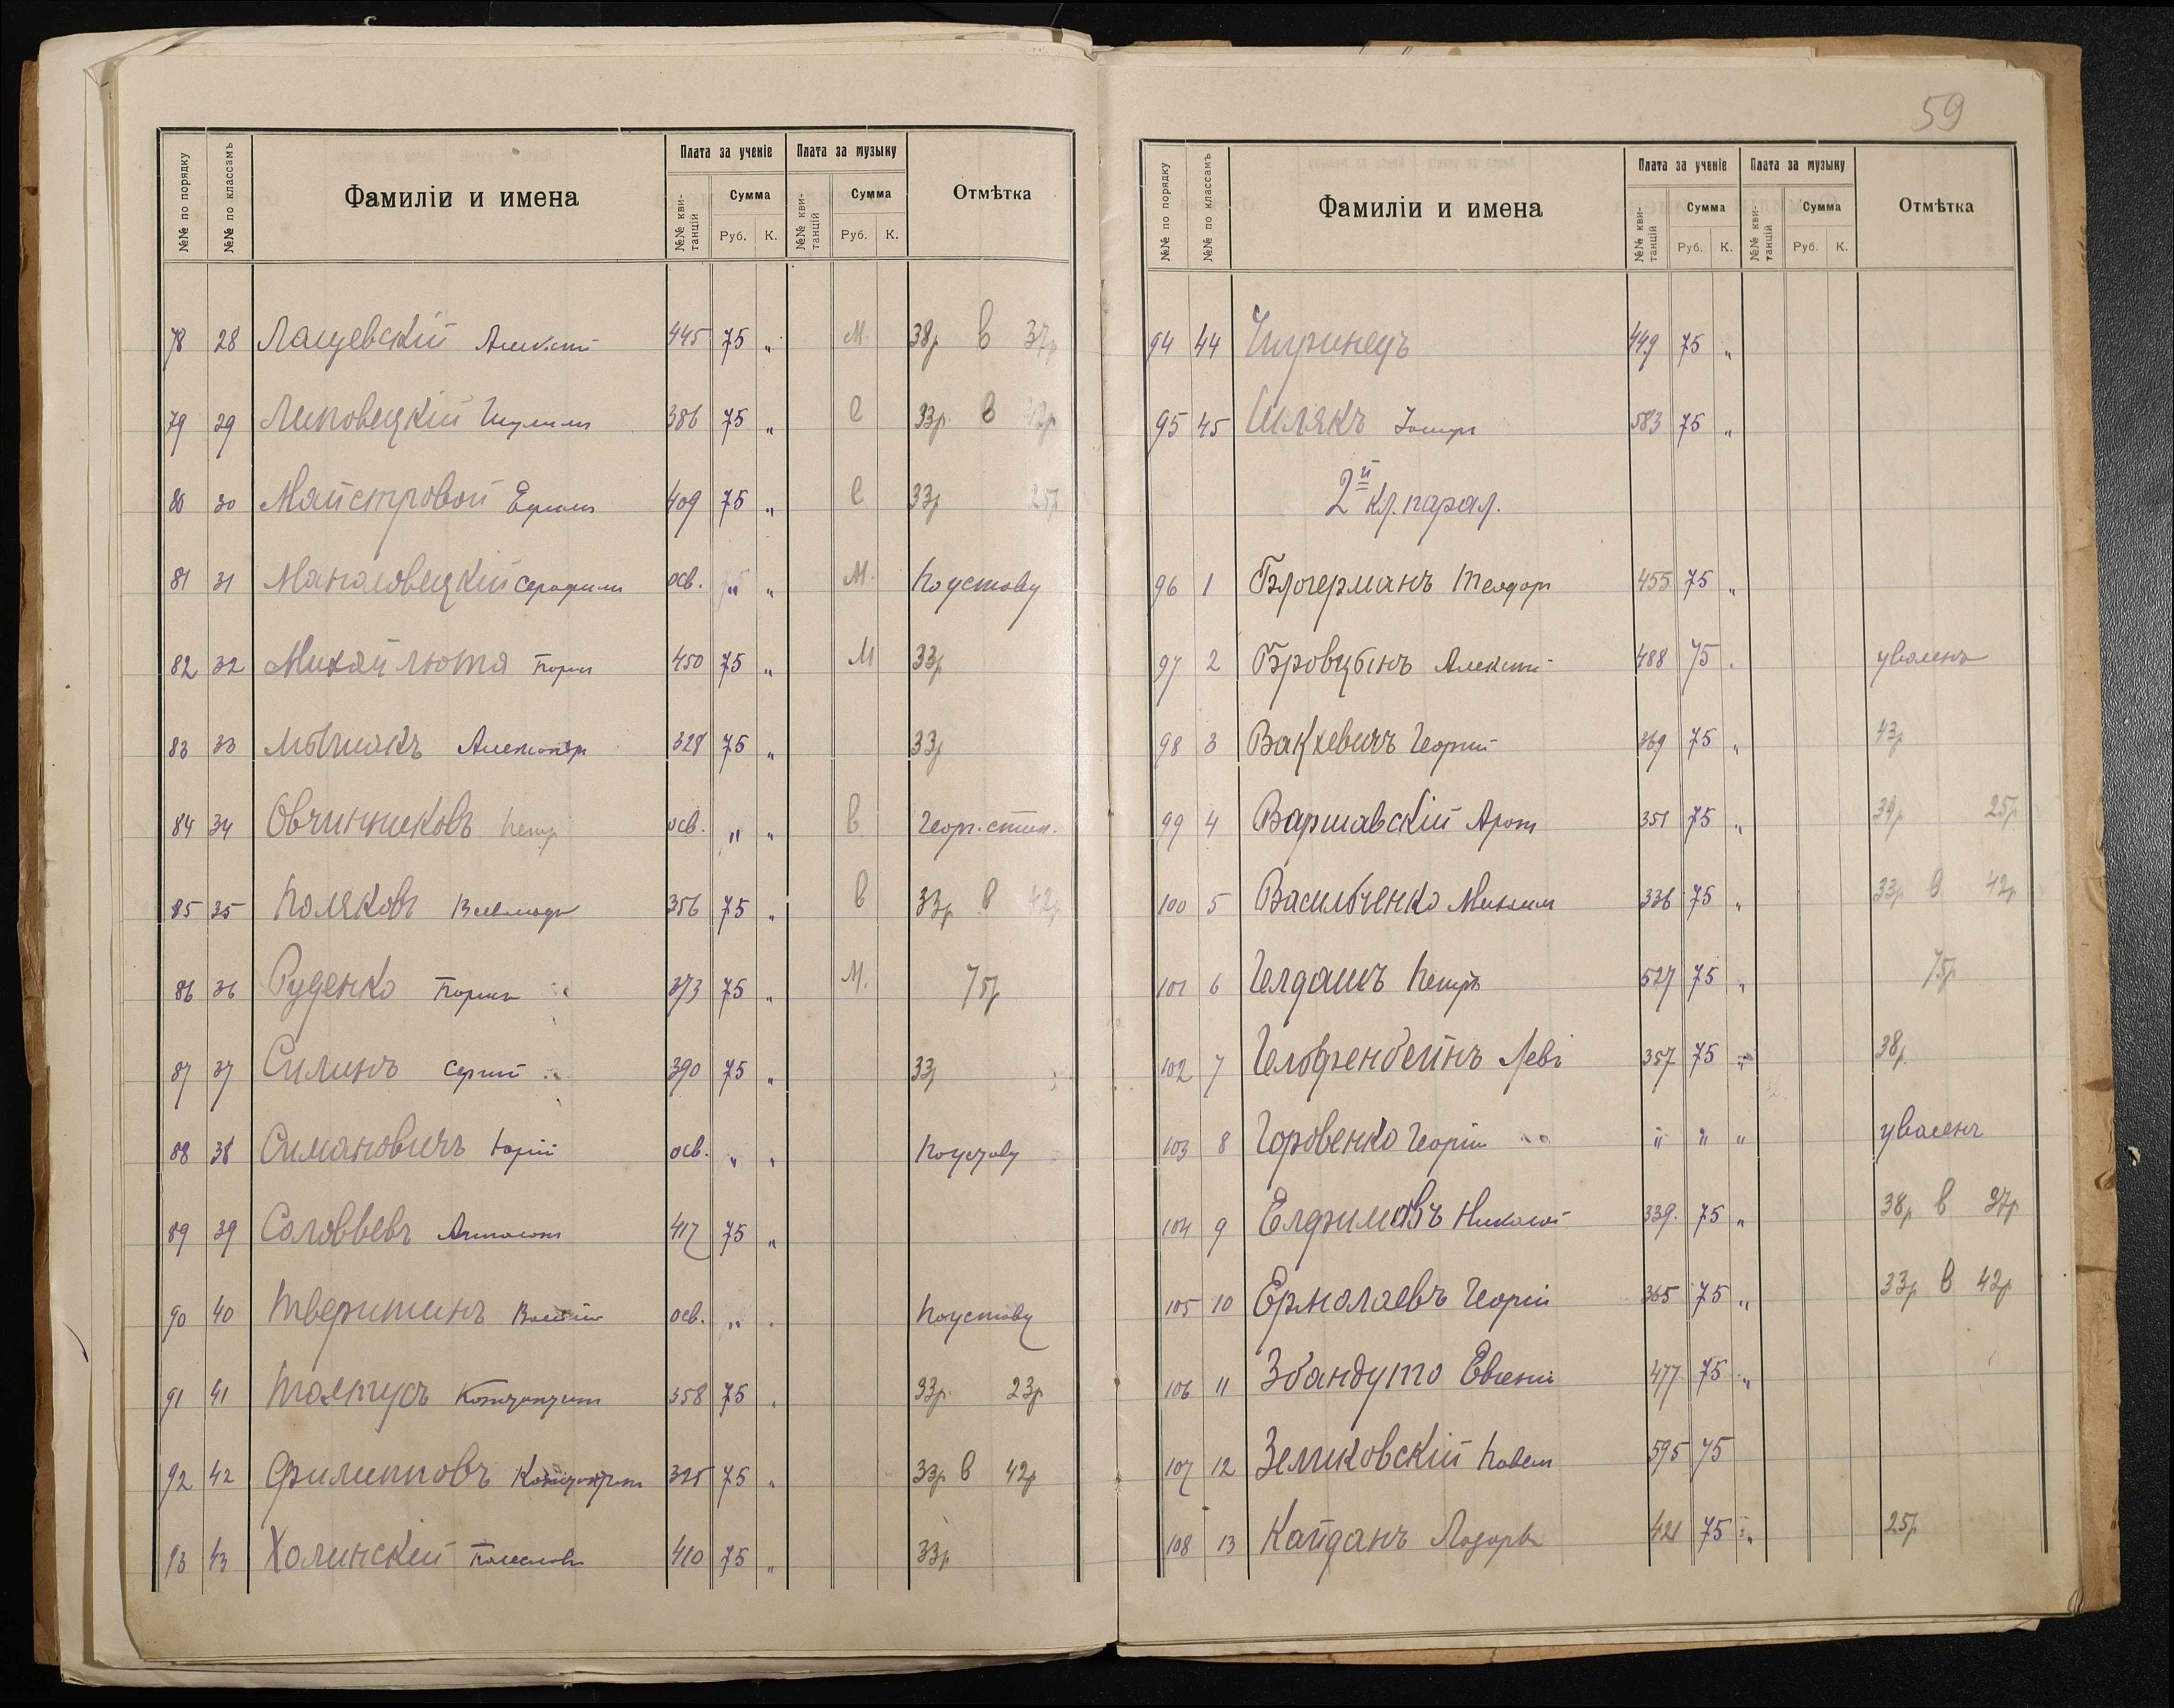 59
№№ по порядку №№ по классамъ Фамиліи и имена Плата за ученіе Плата за музыку Отмѣтка
№№ квитанцій Сумма №№ квитанцій Сумма
Руб. К. Руб. К.
78 28 Лащевскій Алексѣй 445 75 „ М. 38р в 37р
79 29 Липовецкій Шулимъ 386 75 „ е 33р. в 42р
80 30 Майстровой Ефимъ 409 75 „ е 33р 25р
81 31 Мановецкій Серафимъ осв. „ „ М. По уставу
82 32 Михайлюта 450 75 „ М 33р
83 33 Мѣшакъ Александръ 328 75 „ 33р
84 34 Овчинниковъ Петр осв. „ „ в Георг. стип.
85 35 Поляковъ Всеволодъ 356 75 „ в 33р в 42р
86 36 Руденко 373 75 „ М. 75р
87 37 Силинъ Сергѣй 390 75 „ 33р
88 38 Симановичъ Юрій осв. „ „ По уставу
89 39 Соловьевъ Анатолій 417 75 „
90 40 Тверитинъ осв. „ . По уставу
91 41 Константинъ 358 75 . 33р. 23р
92 42 Филипповъ Константинъ 325 75 „ 33р в 42р
93 43 Холинскій 410 75 „ 33р
№№ по порядку №№ по классамъ Фамиліи и имена Плата за ученіе Плата за музыку Отмѣтка
№№ квитанцій Сумма №№ квитанцій Сумма
Руб. К. Руб. К.
94 44 Чигринецъ 449 75 „
95 45 Шлякъ Іосифъ 583 75 „
2й кл. парал.
96 1 Блюгерманъ Теодоръ 455 75 „
97 2 Бровцынъ Алексѣй 488 75 . уволенъ
98 3 Вакхевичъ Георгій 369 75 „ 43р
99 4 Варшавскій Аронъ 351 75 „ 39р 25р
100 5 Васильченко Михаилъ 336 75 „ 33р в 42р
101 6 Гелдашъ Петръ 527 75 „ 75р
102 7 Гельфенбейнъ Левъ 357 75 „ 38р.
103 8 Горовенко Георгій „ „ „ уволенъ
104 9 Елфимовъ Николай 339. 75 „ 38р в 37р
105 10 Ермолаевъ Георгій 365 75 „ 33р в 42р
106 11 Збандуто Евгеній 477 75 „
107 12 Земиковскій Павелъ 595 75
108 13 Кайданъ Лазарь 421 75 „ 25р